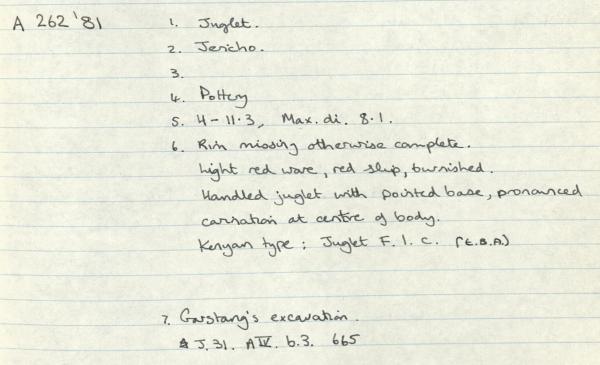 A 262 '81
1. Juglet.
2. Jericho.
3.
4. Pottery
5. H - 11.3, Max. di. 8.1.
6. Rim missing otherwise complete.
Light red ware, red slip, burnished.
Handled juglet with pointed base, pronounced
carination at centre of body.
Kenyan type : Juglet F. 1. c. (E.B.A.)
7. Garstang's excavation.
J. 31. A IV. b.3. 665